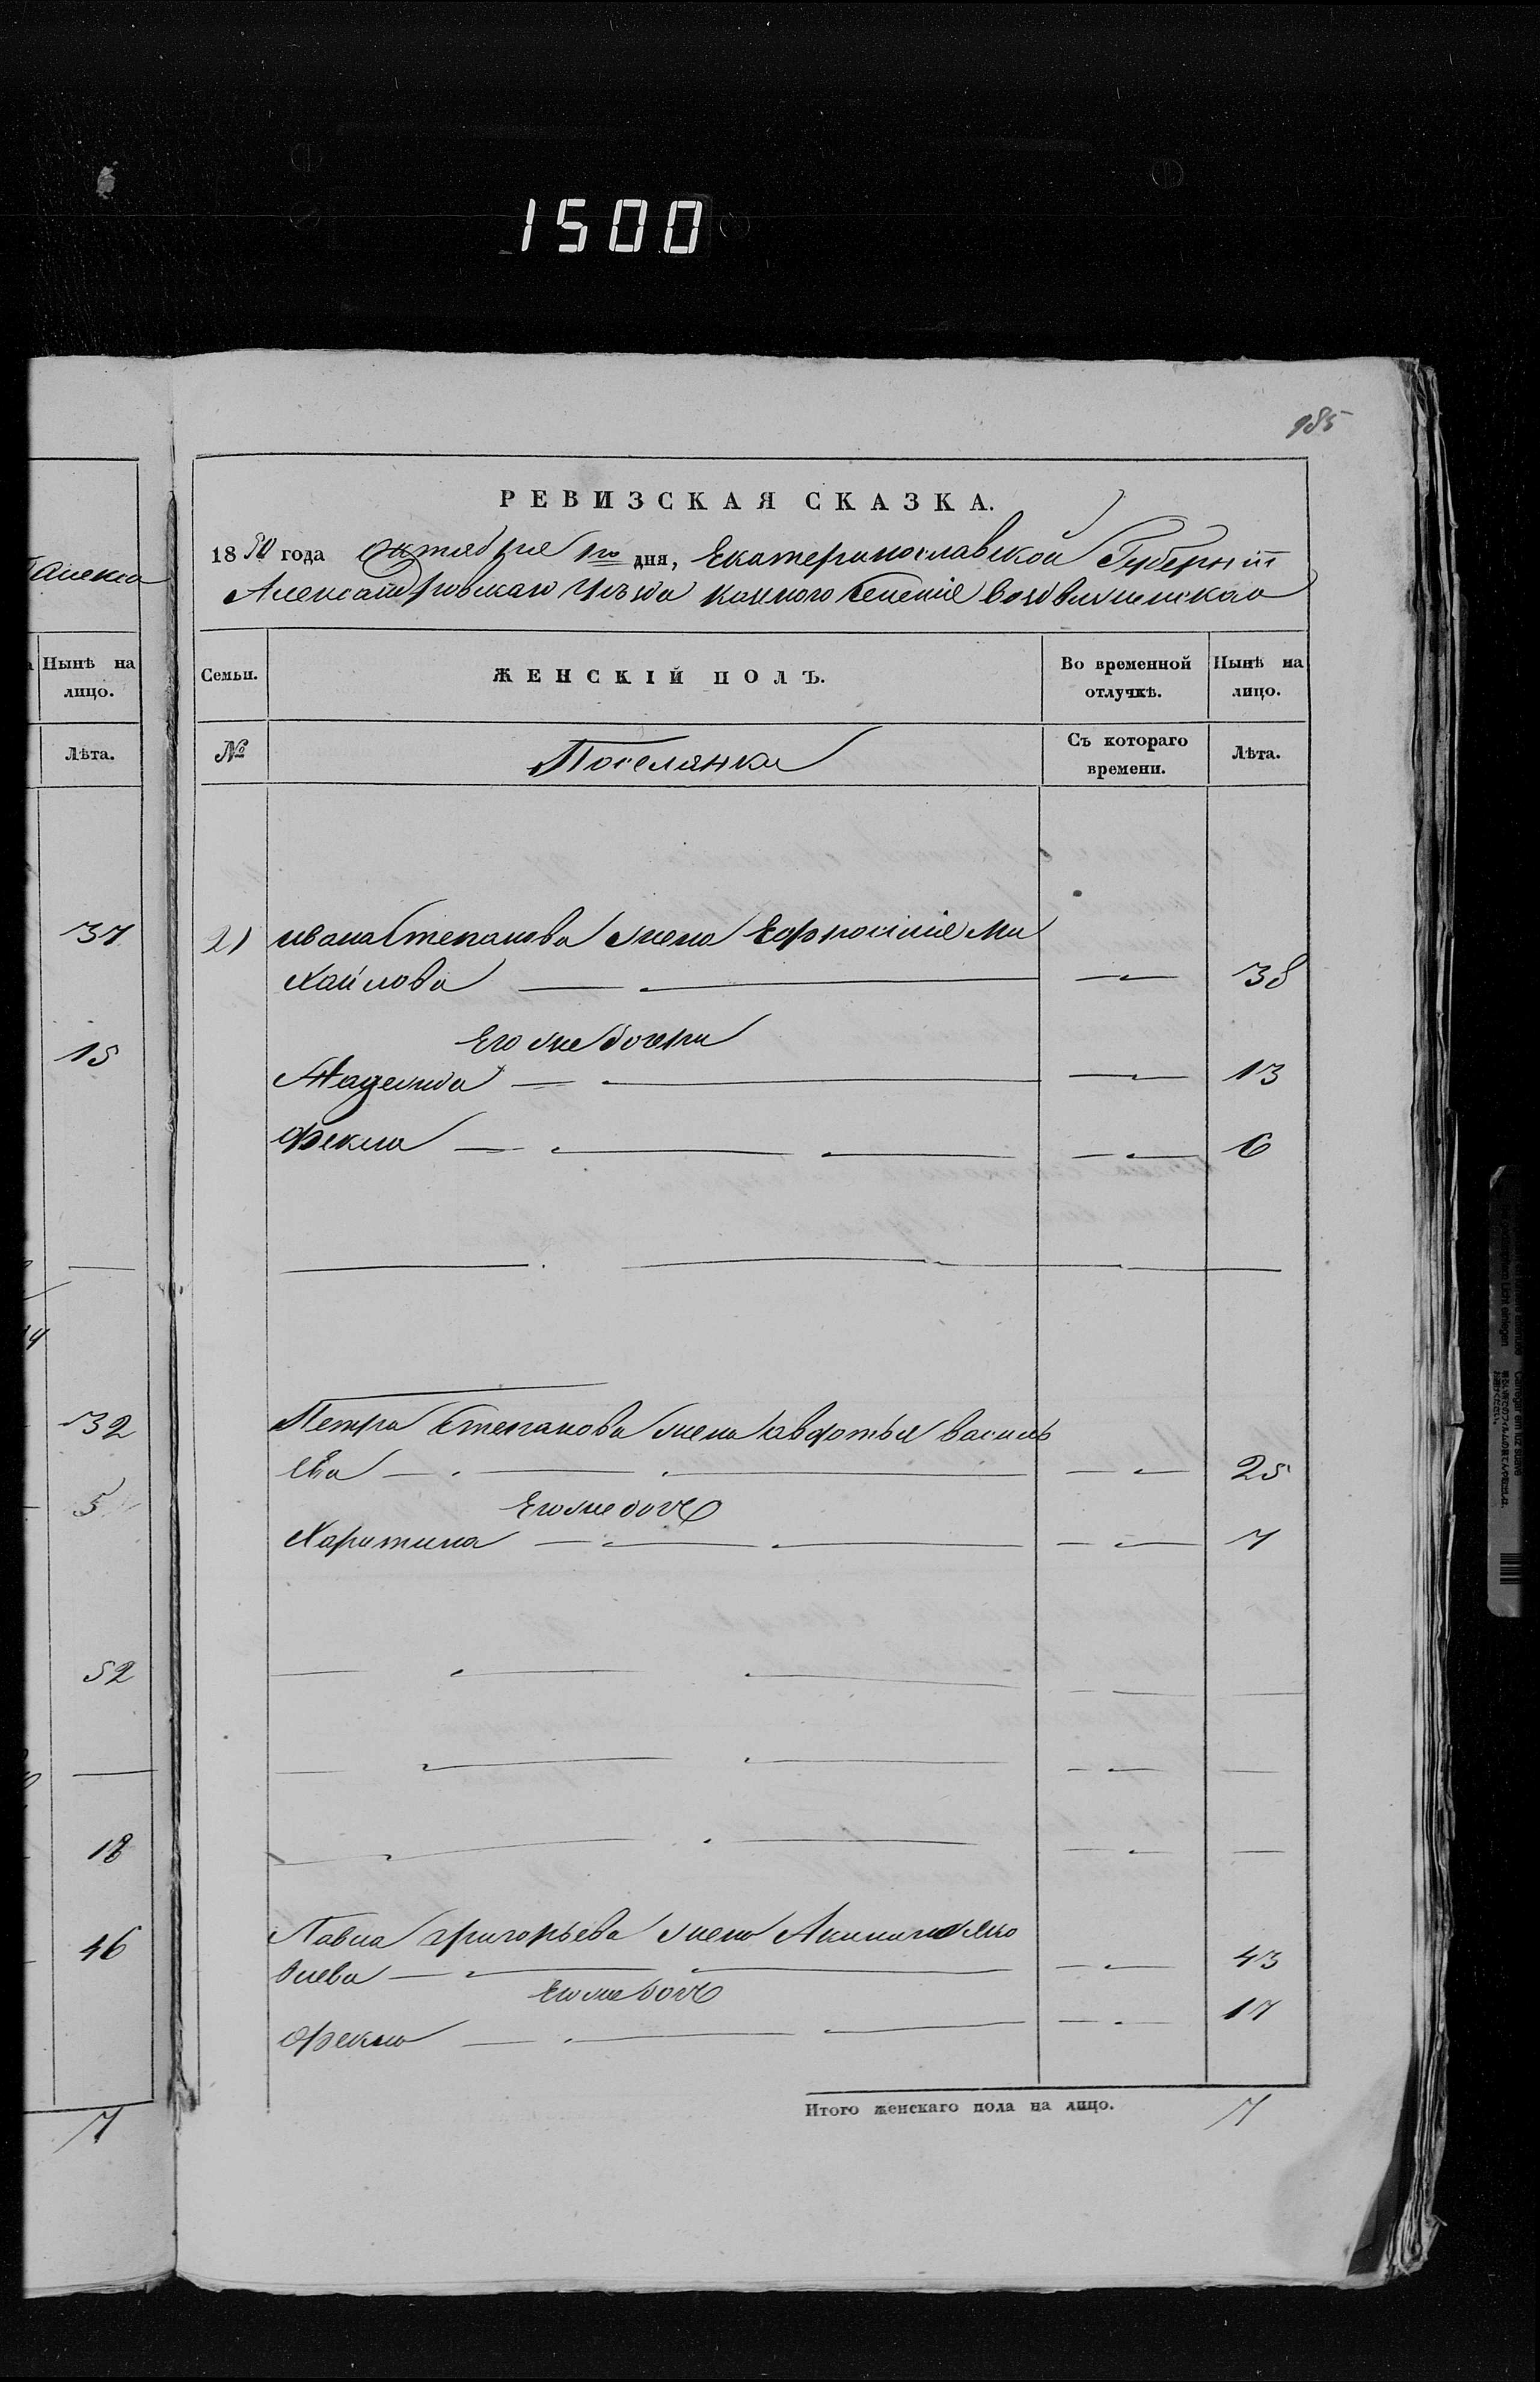 1500
985
РЕВИЗСКАЯ СКАЗКА.
1850 года Октября 1го дня, Екатеринославской Губерніи
Александровскаго Уѣзда
Галека
Нынѣ на
лицо.
Лѣта.
37
15
32
5
52
18
46
7
Семьи.
ЖЕНСКІЙ ПОЛЪ.
Во временной
отлучкѣ.
Нынѣ на
лицо.
№
Поселянка
Съ котораго
времени.
Лѣта.
2) ивана Степанова жена Ефросинія Ми
хайлова 38
Его же дочери
Надежда 13
Фекла 6
Петра Степанова жена авдотья василь
ева 25
Его же дочь
Харитина 7
Павла григорьева жена Акилина Яко
влева 43
Его же дочь
Фекла 17
Итого женскаго пола на лицо. 7